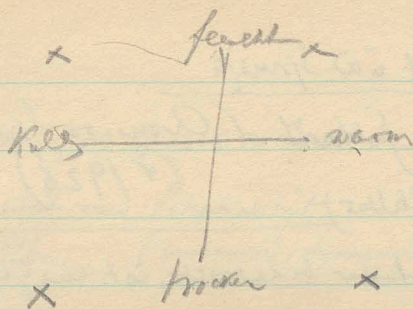 feucht
Kalt warm
trocken